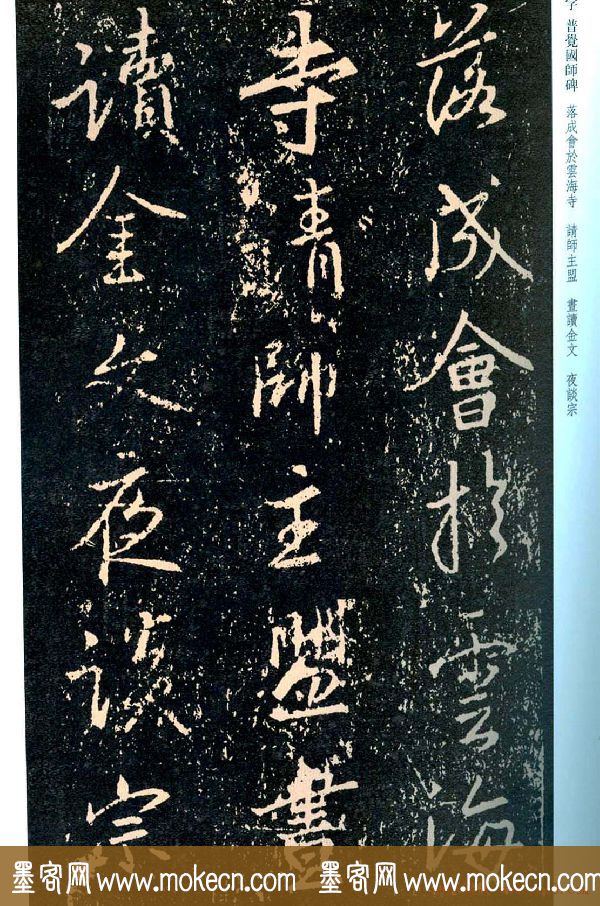 落成會於雲海
寺請師主盟晝
讀金文夜談宗
字 普覺國師碑 落成會於雲海寺 請師主盟 晝讀金文 夜談宗
墨客网 www.mokecn.com 墨客网 www.mokecn.com